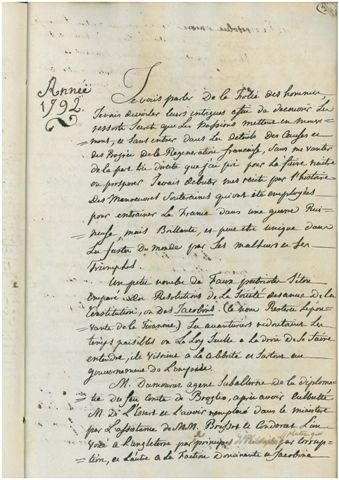 Année
1792.
Je vais parler de la Folie des hommes,
Je vais dévoiler leurs intrigues afin de découvrir les
ressorts secrets que les Passions mettent en mouve-
ment, et sans entrer dans les détails des Causes et
des Progrès de la Regeneration française, sans me vanter
de la part très directe que j'ai pu pour la faire naitre
ou prosperer Je vais debuter mes recits par l'histoire
des Manoeuvres Souterraines qui ont été employées
pour entrainer la France dans une guerre Rui-
neuse, mais Brillante, et peut etre unique dans
les fastes du monde par ses malheurs et ses
Triomphes.
Un petit nombre de Faux patriotes s'étoit
emparé des Resolutions de la Société des amis de la
Constitution, ou des Jacobins (le nom
de la Tirannie) Les avanturiers redoutent les
temps paisibles où La Loy Seule a le droit de se faire
entendre, ils visoient à la celebrité et surtout au
gouvernement de l'empire.
M. Dumourier agent Subalterne de la diploma-
tie du feu Comte de Broglio, après avoir culbuté
M. de l'Essart et l'avoir remplacé dans le ministere
par l'assistance de M.M. Brissot et Condorcet
à l'angleterre par principes et par corrup-
tion, et à la Faction Dominante en Jacobins